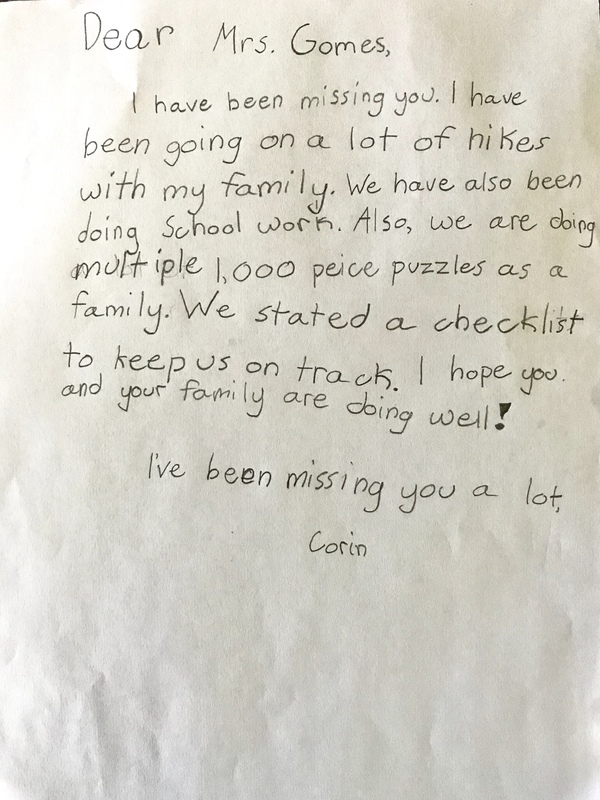 Dear Mrs. Gomes,
I have been missing you. I have
been going on a lot of hikes
with my family. We have also been
doing School work. Also, we are doing
multiple 1,000 peice puzzles as a
family. We stated a checklist
to keep us on track. I hope you.
and your family are doing well!
I've been missing you a lot,
Corin